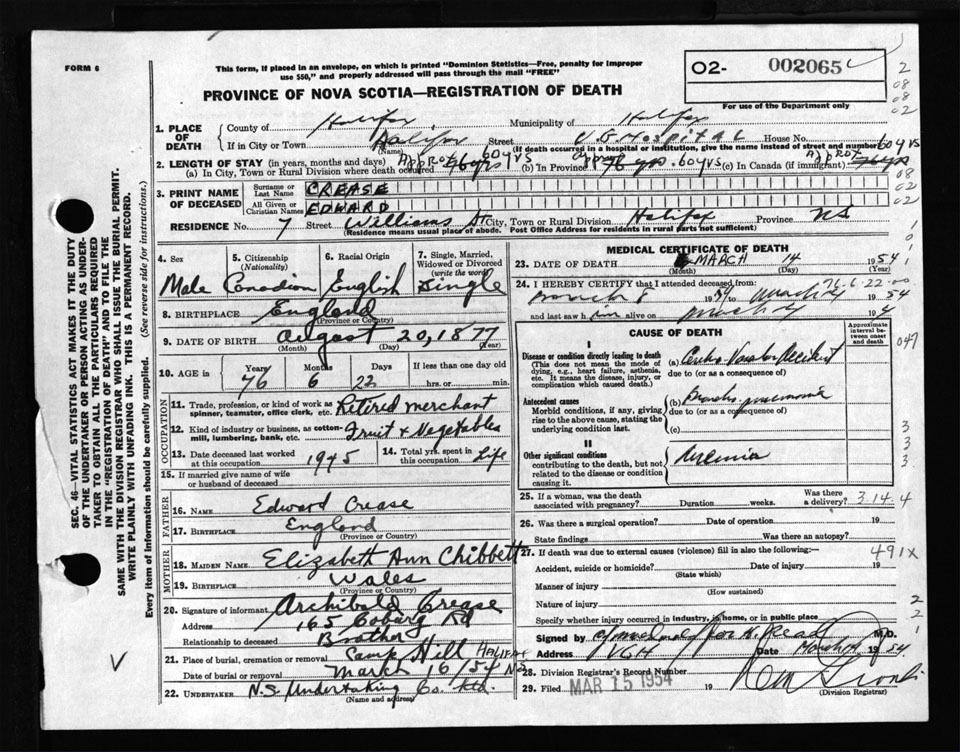 FORM 6
This form, if placed in an envelope, on which is printed "Dominion Statistics—Free, penalty for improper
use $50," and properly addressed will pass through the mail "FREE"
O2- 002065
For use of the Department only
PROVINCE OF NOVA SCOTIA—REGISTRATION OF DEATH
SEC. 46—VITAL STATISTICS ACT MAKES IT THE DUTY
OF THE UNDERTAKER OR PERSON ACTING AS UNDER-
TAKER TO OBTAIN ALL THE PARTICULARS REQUIRED
IN THE "REGISTRATION OF DEATH" AND TO FILE THE
SAME WITH THE DIVISION REGISTRAR WHO SHALL ISSUE THE BURIAL PERMIT.
WRITE PLAINLY WITH UNFADING INK. THIS IS A PERMANENT RECORD.
Every item of information should be carefully supplied. (See reverse side for instructions.)
1. PLACE OF DEATH County of Halifax Municipality of Halifax
If in City or Town Halifax Street V.G. Hospital House No.
(Name) (If death occurred in a hospital or institution, give the name instead of street and number)
2. LENGTH OF STAY (in years, months and days)
(a) In City, Town or Rural Division where death occurred Approx 76 yrs 60 yrs (b) In Province 76 yrs. 60 yrs (c) In Canada (if immigrant) Approx 76 yrs 60 yrs
3. PRINT NAME OF DECEASED Surname or Last Name CREASE
All Given or Christian Names EDWARD
RESIDENCE No. 7 Street Williams St City, Town or Rural Division Halifax Province NS
(Residence means usual place of abode. Post Office Address for residents in rural parts not sufficient)
4. Sex 5. Citizenship (Nationality) 6. Racial Origin 7. Single, Married, Widowed or Divorced (write the word)
Male Canadian English Single
8. BIRTHPLACE England
(Province or Country)
9. DATE OF BIRTH August 20, 1877
(Month) (Day) (Year)
10. AGE in Years Months Days If less than one day old
76 6 22 hrs. or min.
OCCUPATION
11. Trade, profession, or kind of work as spinner, teamster, office clerk, etc. Retired merchant
12. Kind of industry or business, as cotton-mill, lumbering, bank, etc. Fruit & Vegetables
13. Date deceased last worked at this occupation 1945 14. Total yrs. spent in this occupation Life
15. If married give name of wife or husband of deceased
FATHER
16. Name Edward Crease
17. Birthplace England
(Province or Country)
MOTHER
18. MAIDEN NAME Elizabeth Ann Chibbett
19. BIRTHPLACE Wales
(Province or Country)
20. Signature of informant Archibald Crease
Address 165 Coburg Rd
Relationship to deceased Brother
21. Place of burial, cremation or removal Camp Hill HALIFAX
Date of burial or removal March 16/54 N.S.
22. UNDERTAKER N.S. Undertaking Co. Ltd.
(Name and address)
MEDICAL CERTIFICATE OF DEATH
23. DATE OF DEATH MARCH 14 1954
(Month) (Day) (Year)
76-6-22-00
24. I HEREBY CERTIFY that I attended deceased from:
March 1954 to March 14 1954
and last saw him alive on March 14
CAUSE OF DEATH
Approximate interval between onset and death
I
Disease or condition directly leading to death
(This does not mean the mode of dying, e.g., heart failure, asthenia, etc. It means the disease, injury, or complication which caused death.)
(a) Cerebro Vascular Accident
due to (or as a consequence of)
Antecedent causes
Morbid conditions, if any, giving rise to the above cause, stating the underlying condition last.
(b) Broncho pneumonia
due to (or as a consequence of)
(c)
II
Other significant conditions
contributing to the death, but not related to the disease or condition causing it.
Uremia
25. If a woman, was the death associated with pregnancy? Duration weeks. Was there a delivery? 3.14.4
26. Was there a surgical operation? Date of operation 19
State findings Was there an autopsy?
27. If death was due to external causes (violence) fill in also the following:— 491X
Accident, suicide or homicide? Date of injury 19
(State which)
Manner of injury
(How sustained)
Nature of injury
Specify whether injury occurred in industry, in home, or in public place
Signed by for H. Read M.D.
Address VGH Date March 14 1954
28. Division Registrar's Record Number
29. Filed MAR 15 1954 19
(Division Registrar)